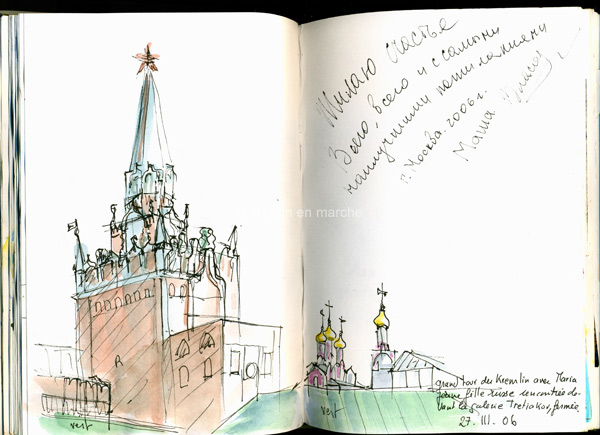 Жилаю счастье
Всего, всего и с самыми
наилучшими пожиланиями
г. Москва. 2006 г.
Маша
en marche
R
vert
vert
grand tour du Kremlin avec Maria
jeune fille russe rencontrée de-
vant la galerie Tretiakov, fermée
27. III. 06